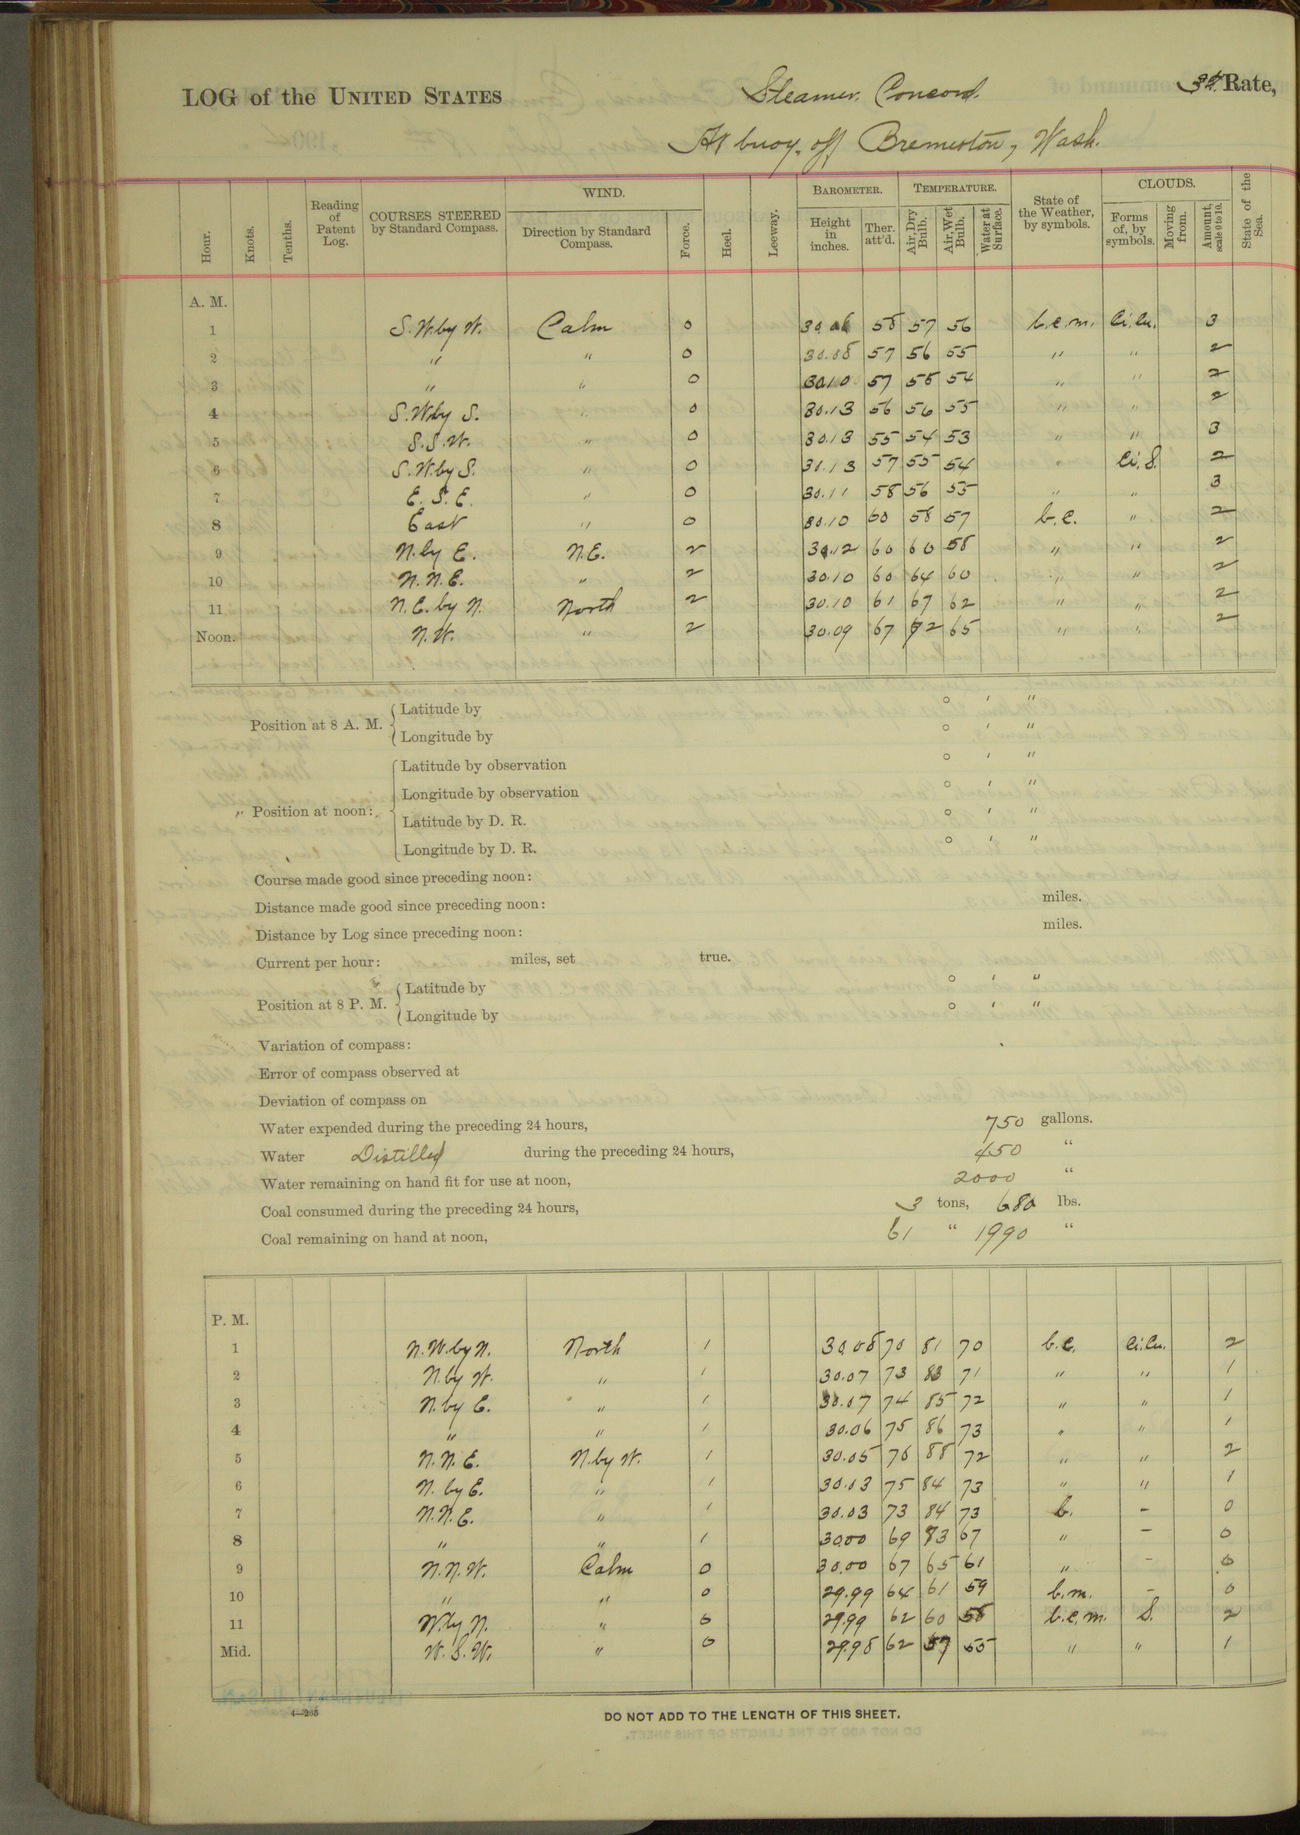 LOG of the UNITED STATES Steamer Concord. 3d. Rate,
At buoy off Bremerton, Wash.
Hour. Knots. Tenths. Reading of Patent Log. COURSES STEERED by Standard Compass. WIND. Direction by Standard Compass. Force. Heel. Leeway. BAROMETER. Height in inches. Ther. att'd. TEMPERATURE. Air, Dry Bulb. Air, Wet Bulb. Water at Surface. State of the Weather, by symbols. CLOUDS. Forms of, by symbols. Moving from. Amount, scale 0 to 10. State of the Sea.
A. M.
1 S.W. by W. Calm 0 58 57 56 b.c.m. Ci.Cu. 3
2 " " 0 30.08 57 56 55 " " 2
3 " " 0 30.10 57 55 54 " " 2
4 S.W. by S. " 0 30.13 56 56 55 " " 2
5 S.S.W. " 0 30.13 55 54 53 " " 3
6 S.W. by S. " 0 30.13 57 55 54 " Ci.S. 2
7 E.S.E. " 0 30.11 58 56 55 " " 3
8 East " 0 30.10 60 58 57 b.c. " 2
9 N. by E. N.E. 2 30.12 60 60 58 " " 2
10 N.N.E. " 2 30.10 60 64 60 " " 2
11 N.E. by N. North 2 30.10 61 67 62 " " 2
Noon. N.W. " 2 30.09 67 72 65 " " 2
Position at 8 A. M. Latitude by ° ' "
Longitude by ° ' "
Position at noon: Latitude by observation ° ' "
Longitude by observation ° ' "
Latitude by D. R. ° ' "
Longitude by D. R. ° ' "
Course made good since preceding noon:
Distance made good since preceding noon: miles.
Distance by Log since preceding noon: miles.
Current per hour: miles, set true.
Position at 8 P. M. Latitude by ° ' "
Longitude by ° ' "
Variation of compass:
Error of compass observed at
Deviation of compass on
Water expended during the preceding 24 hours, 750 gallons.
Water Distilled during the preceding 24 hours, 450 "
Water remaining on hand fit for use at noon, 2000 "
Coal consumed during the preceding 24 hours, 3 tons, 680 lbs.
Coal remaining on hand at noon, 61 " 1990 "
P. M.
1 N.W. by N. North 1 30.08 70 81 70 b.c. Ci.Cu. 2
2 N. by W. " 1 30.07 73 83 71 " " 1
3 N. by E. " 1 30.07 74 85 72 " " 1
4 " " 1 30.06 75 86 73 " " 1
5 N.N.E. N. by W. 1 30.05 76 88 72 " " 2
6 N. by E. " 1 30.03 75 84 73 " " 1
7 N.N.E. " 1 30.03 73 84 73 b. - 0
8 " " 1 30.00 69 73 67 " - 0
9 N.N.W. Calm 0 30.00 67 65 61 " - 0
10 " " 0 29.99 64 61 59 b.m. - 0
11 W. by N. " 0 29.99 62 60 58 b.c.m. S. 2
Mid. W.S.W. " 0 29.98 62 57 55 " " 1
4—265
DO NOT ADD TO THE LENGTH OF THIS SHEET.